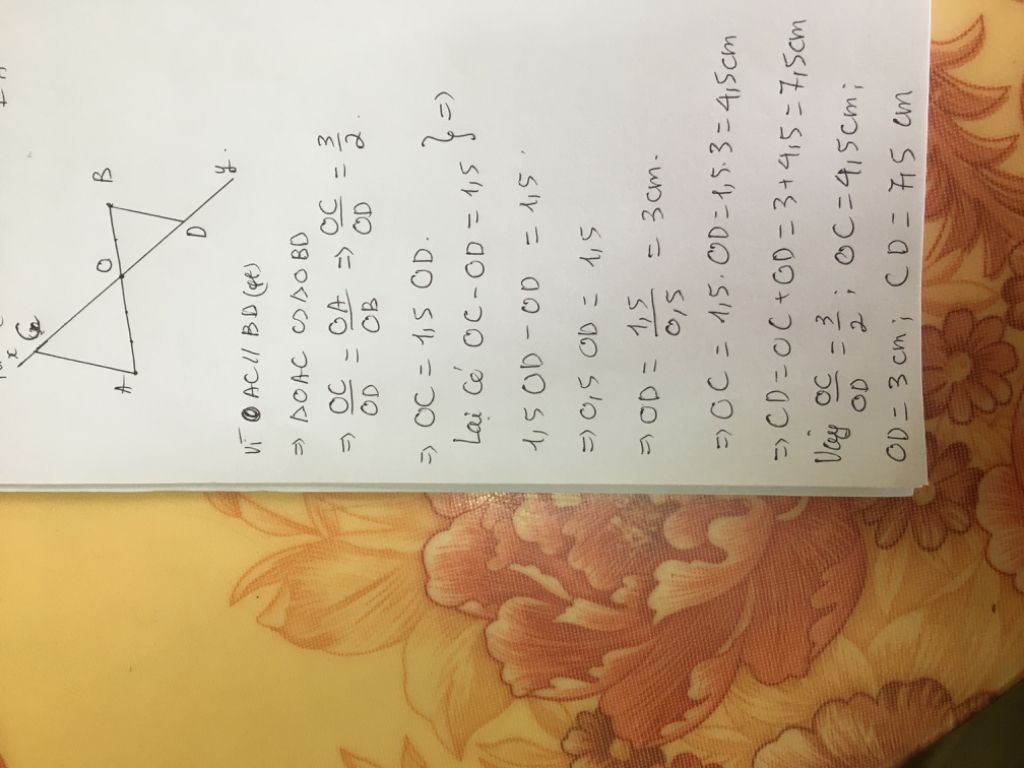 x C
O B
A
D y.
Vì AC // BD (gt)
=> ΔOAC ∽ ΔOBD
=> OC/OD = OA/OB => OC/OD = 3/2.
=> OC = 1,5 OD.
Lại có OC - OD = 1,5 } =>
1,5 OD - OD = 1,5.
=> 0,5 OD = 1,5
=> OD = 1,5/0,5 = 3 cm.
=> OC = 1,5 . OD = 1,5 . 3 = 4,5 cm
=> CD = OC + OD = 3 + 4,5 = 7,5 cm
Vậy OC/OD = 3/2 ; OC = 4,5 cm ;
OD = 3 cm ; CD = 7,5 cm